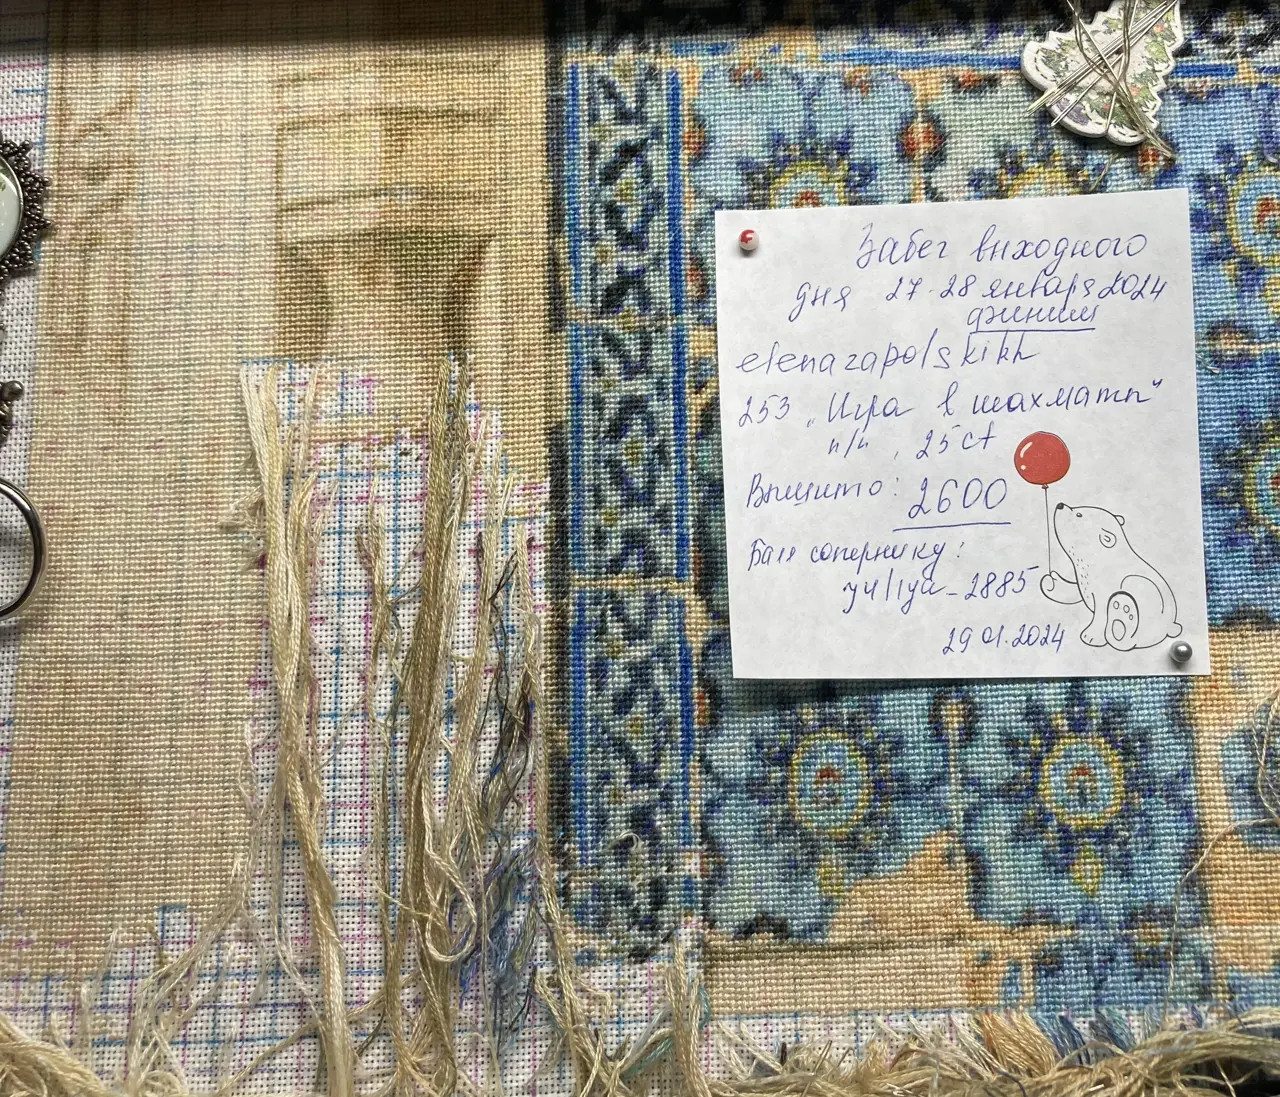 Забег выходного
дня 27-28 января 2024
финиш
elenazapolskikh
253 „Игра в шахматы"
п/п, 25ct
Вышито: 2600
Баллы сопернику:
- 2885
29.01.2024